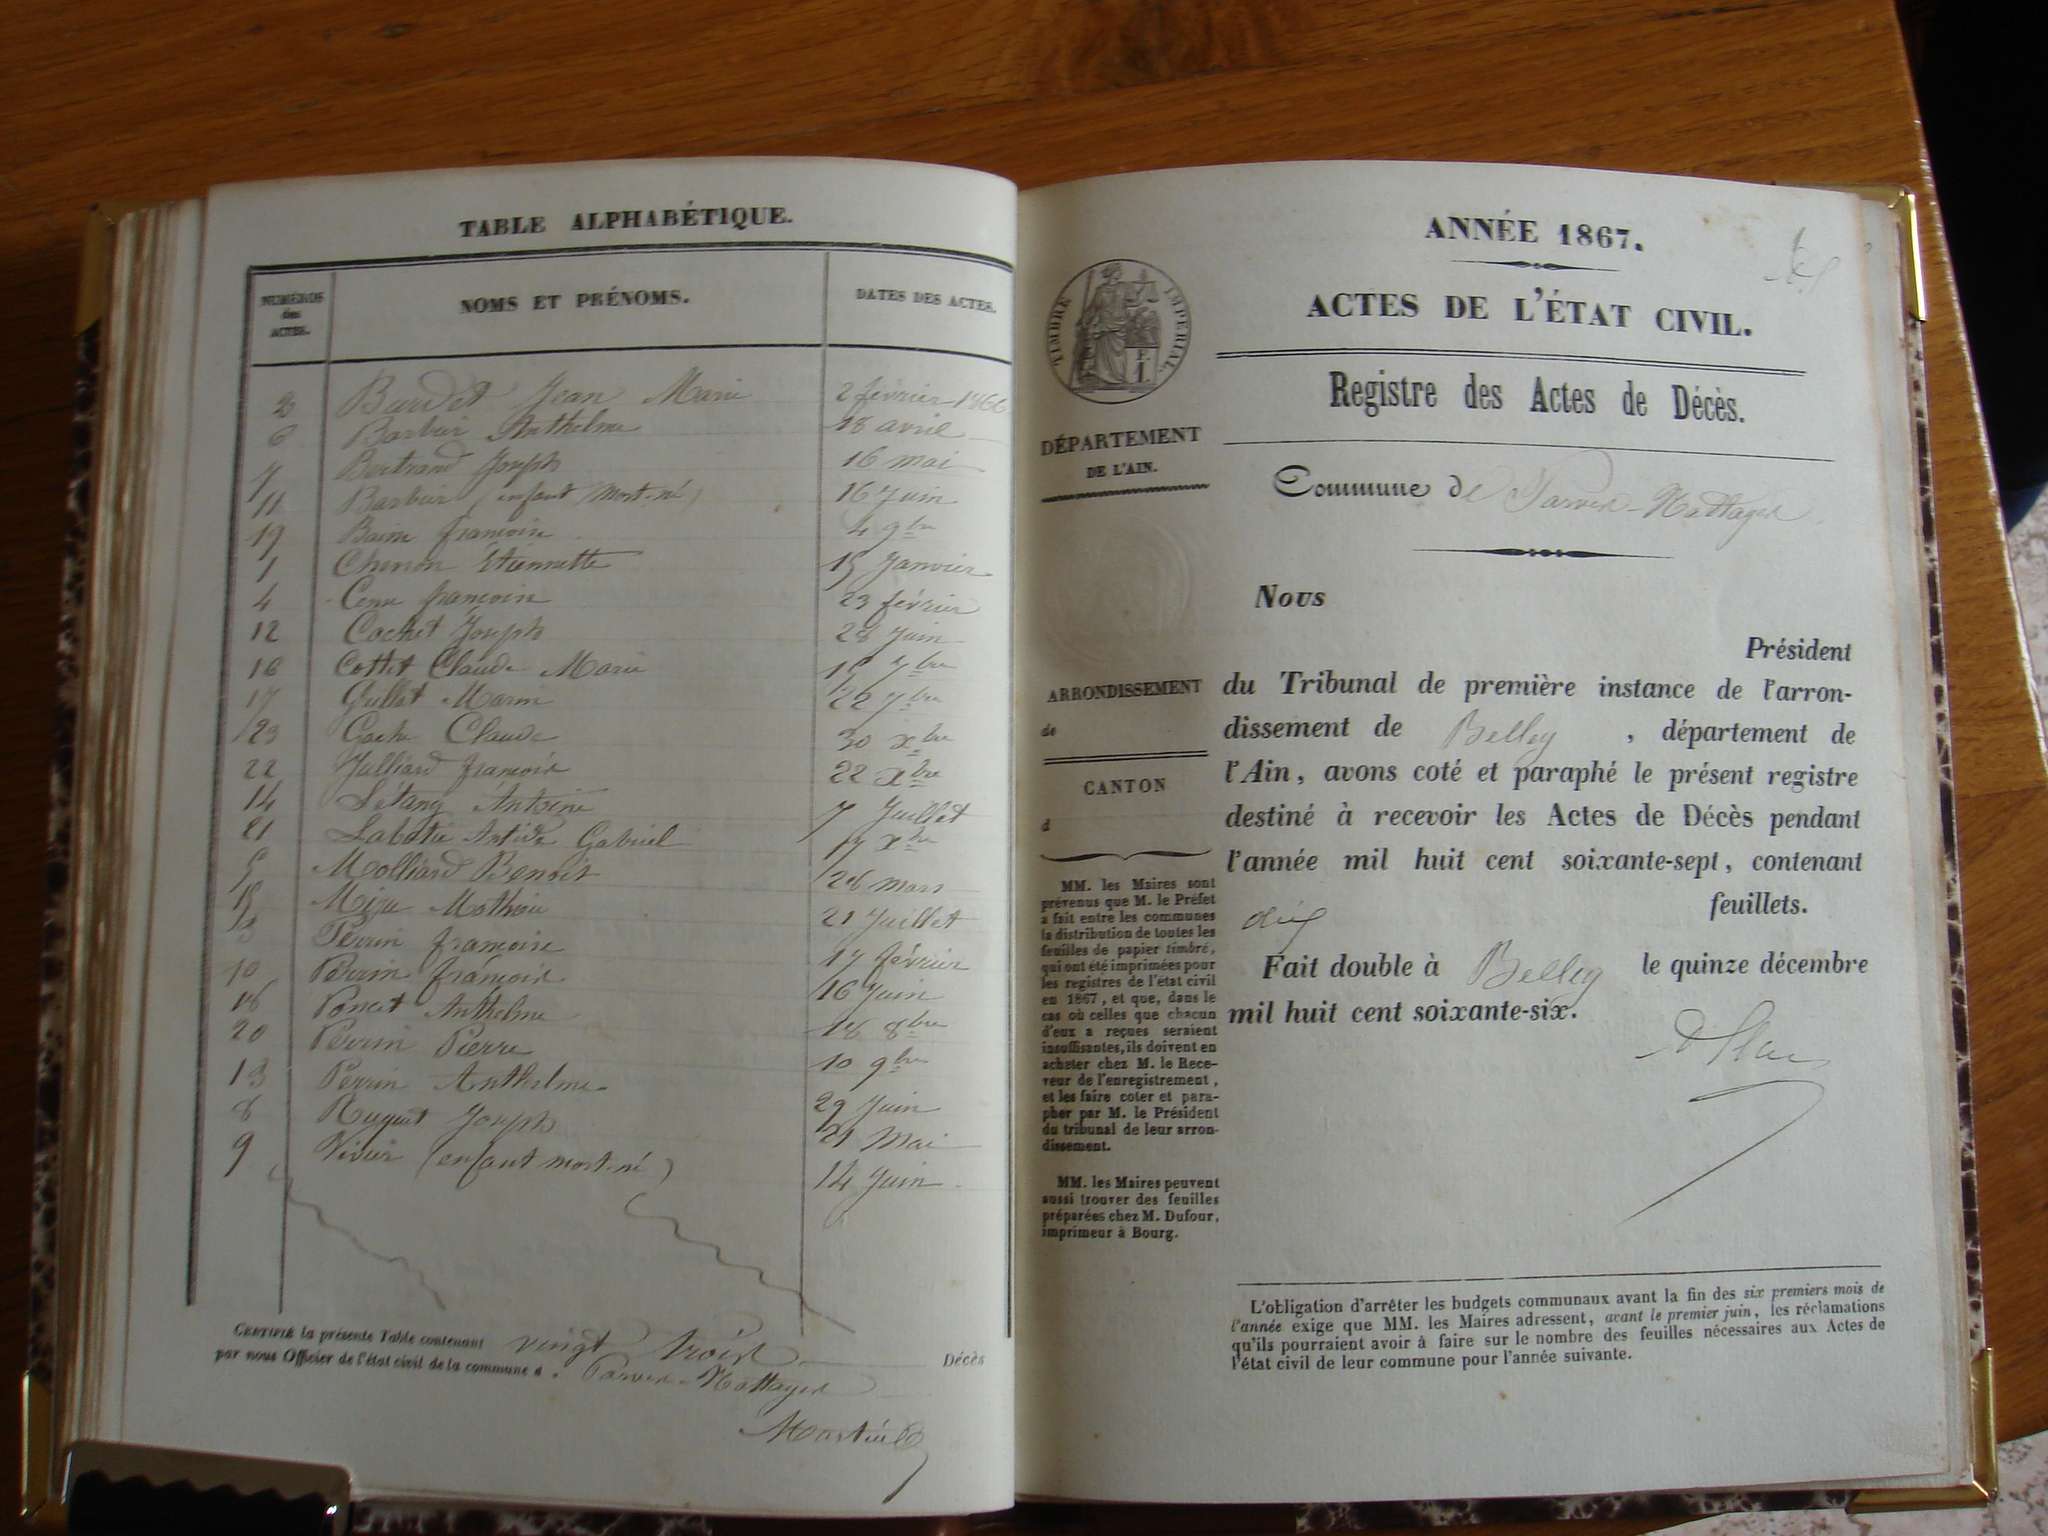 TABLE ALPHABÉTIQUE.
NUMÉROS des ACTES. NOMS ET PRÉNOMS. DATES DES ACTES.
2 Burdet Jean Marie 2 février 1866
6 Barbier Anthelme 18 avril
7 Bertrand Joseph 16 mai
11 Barbier (enfant mort-né) 16 Juin
19 françoise 4 9bre
1 Etiennette 15 Janvier
4 françoise 23 février
12 Cochet Joseph 28 Juin
16 Cottet Claude Marie 7bre
17 Grillet Marin 7bre
23 Claude 30 xbre
22 Julliard françois 22 xbre
14 Létang Antoine 7 Juillet
21 Gabriel 17 xbre
5 Molliard Benoit 28 mars
15 Mathieu 21 Juillet
3 Perrin françoise 17 février
10 Perrin françois 16 Juin
18 Poncet Anthelme 18 8bre
20 Perrin Pierre 10 9bre
13 Perrin Anthelme 29 Juin
8 Joseph 21 Mai
9 Vivier (enfant mort-né) 14 Juin
CERTIFIÉ la présente Table contenant vingt trois Décès
par nous Officier de l'état civil de la commune d. Parves-Nattages
ANNÉE 1867.
ACTES DE L'ÉTAT CIVIL.
Registre des Actes de Décès.
TIMBRE IMPÉRIAL
DÉPARTEMENT
DE L'AIN.
Commune de Parves-Nattages
ARRONDISSEMENT
de
CANTON
d
MM. les Maires sont
prévenus que M. le Préfet
a fait entre les communes
la distribution de toutes les
feuilles de papier timbré,
qui ont été imprimées pour
les registres de l'état civil
en 1867, et que, dans le
cas où celles que chacun
d'eux a reçues seraient
insuffisantes, ils doivent en
acheter chez M. le Rece-
veur de l'enregistrement,
et les faire coter et para-
pher par M. le Président
du tribunal de leur arron-
dissement.
MM. les Maires peuvent
aussi trouver des feuilles
préparées chez M. Dufour,
imprimeur à Bourg.
Nous
Président
du Tribunal de première instance de l'arron-
dissement de Belley, département de
l'Ain, avons coté et paraphé le présent registre
destiné à recevoir les Actes de Décès pendant
l'année mil huit cent soixante-sept, contenant
dix feuillets.
Fait double à Belley le quinze décembre
mil huit cent soixante-six.
L'obligation d'arrêter les budgets communaux avant la fin des six premiers mois de
l'année exige que MM. les Maires adressent, avant le premier juin, les réclamations
qu'ils pourraient avoir à faire sur le nombre des feuilles nécessaires aux Actes de
l'état civil de leur commune pour l'année suivante.